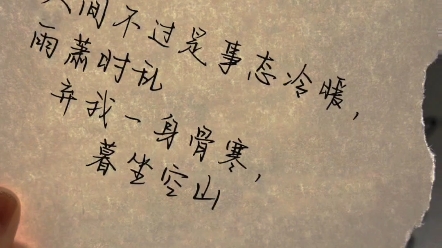 人间不过是事态冷暖,
雨萧时乱
弃我一身骨寒,
暮坐空山